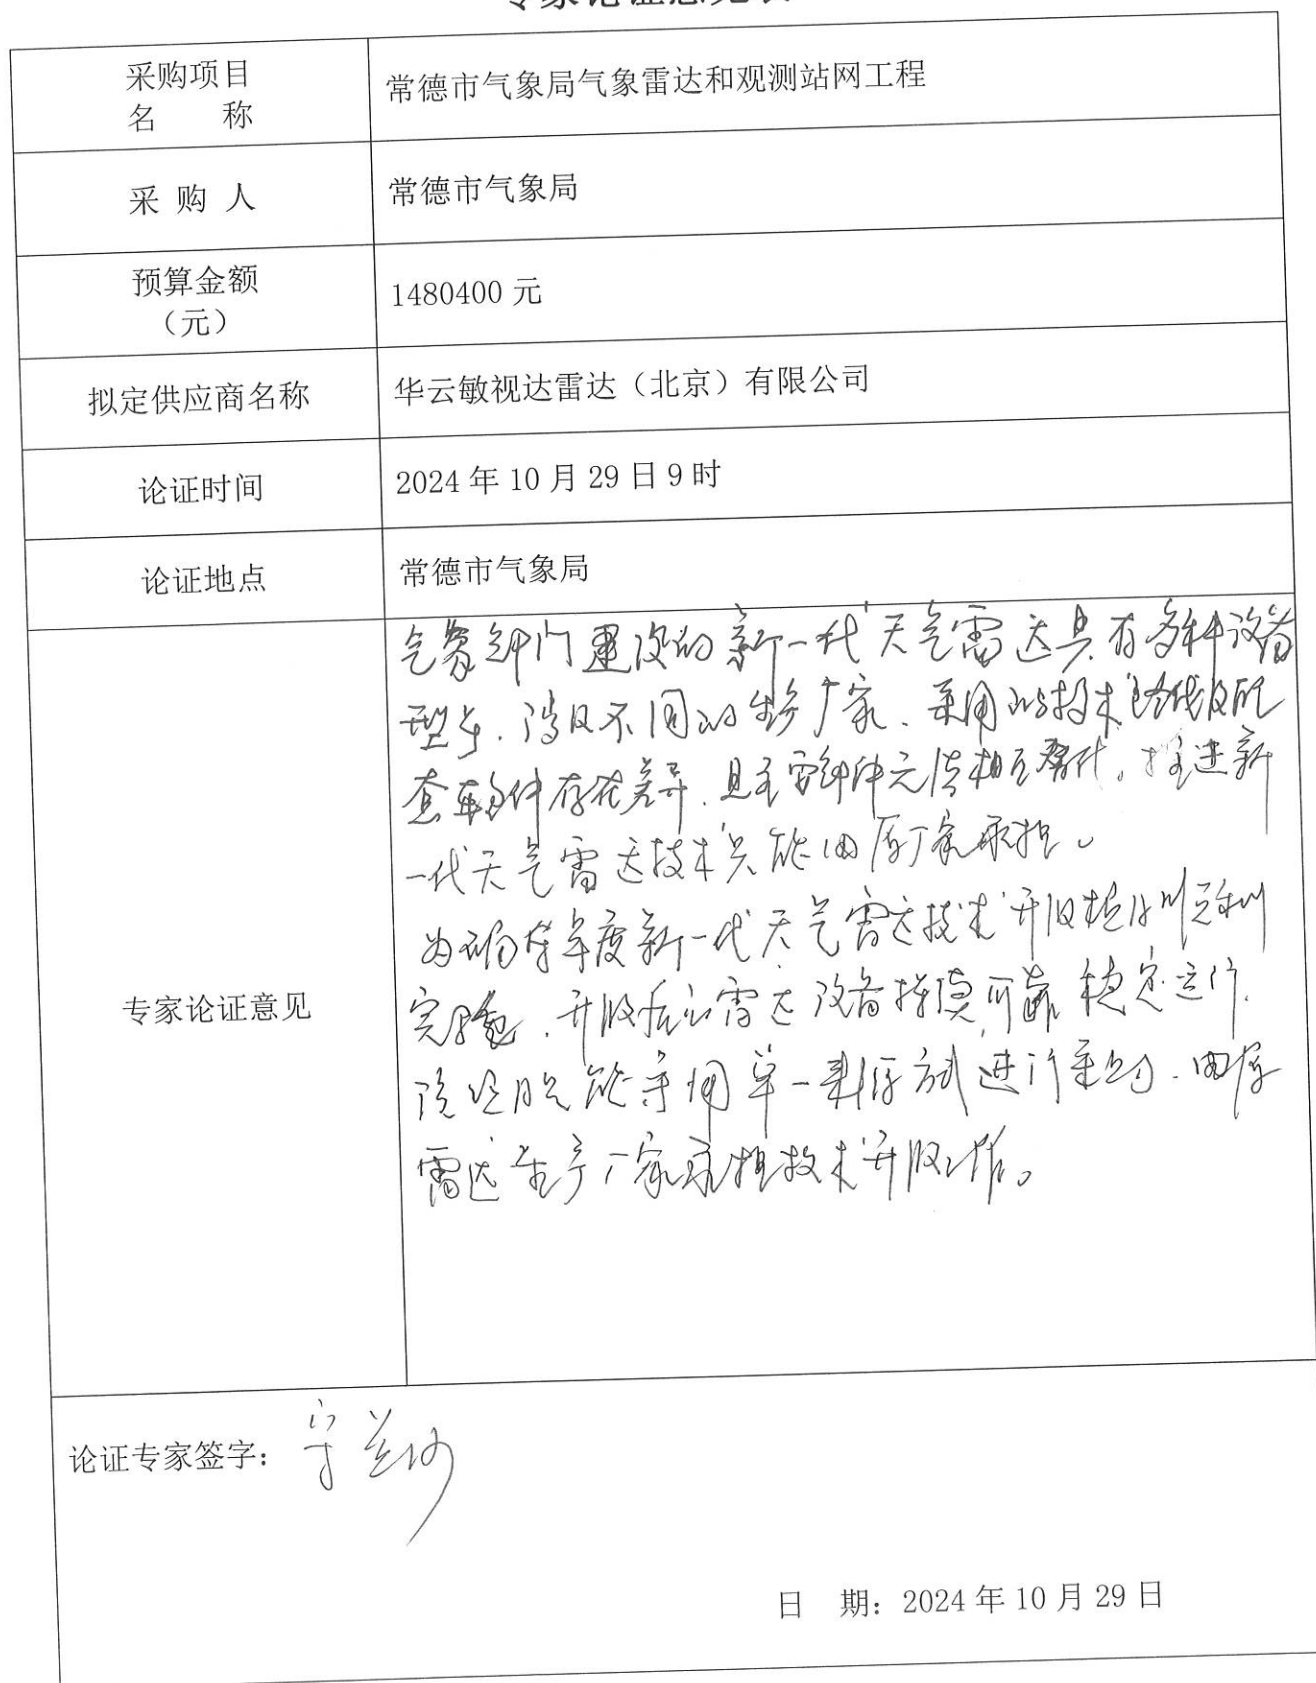 专家论证意见表
采购项目
名 称
常德市气象局气象雷达和观测站网工程
采 购 人
常德市气象局
预算金额
（元）
1480400 元
拟定供应商名称
华云敏视达雷达（北京）有限公司
论证时间
2024 年 10 月 29 日 9 时
论证地点
常德市气象局
专家论证意见
气象部门建设的新一代天气雷达具有多种设备
型号、涉及不同的生产厂家、采用的技术路线及配
套软件存在差异、且主要部件无法相互替代。推进新
一代天气雷达技术只能由原厂家承担。
为确保年度新一代天气雷达技术升级项目顺利
完成、升级后的雷达设备 可靠稳定运行、
该项目只能采用单一来源方式进行采购、由原
雷达生产厂家承担技术升级工作。
论证专家签字：
日 期：2024 年 10 月 29 日